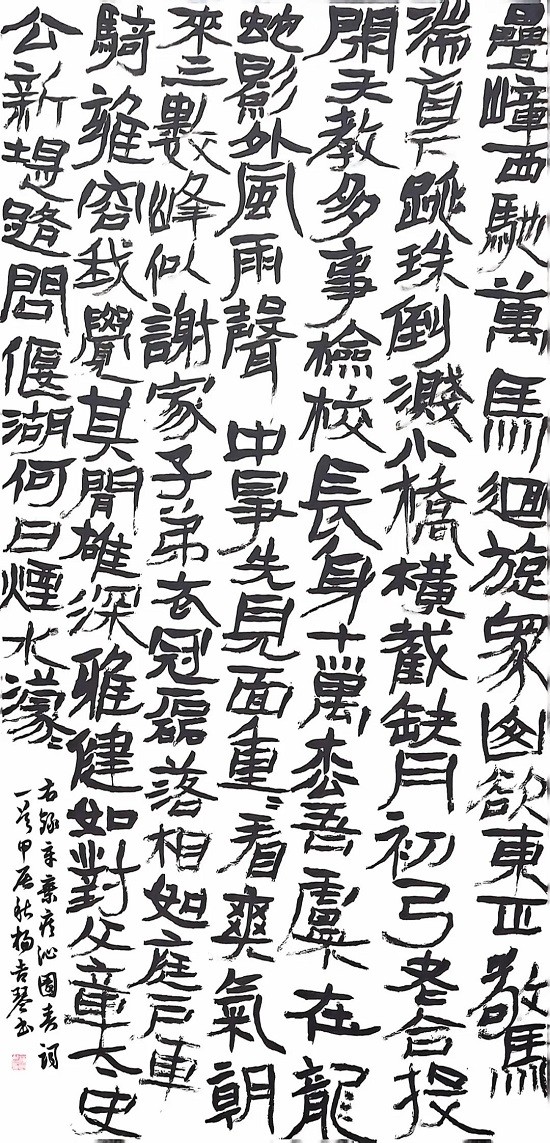 疊嶂西馳萬馬迴旋衆山欲東正驚
湍直下跳珠倒濺小橋橫截缺月初弓老合投
閑天教多事檢校長身十萬松吾廬在龍
虵影外風雨聲中爭先見面重〻看爽氣朝
來三數峰似謝家子弟衣冠磊落相如庭戶車
騎雍容我覺其間雄深雅健如對文章太史
公新堤路問偃湖何日煙水濛〻
右錄辛棄疾沁園春詞
一首甲辰秋楊吉琴書